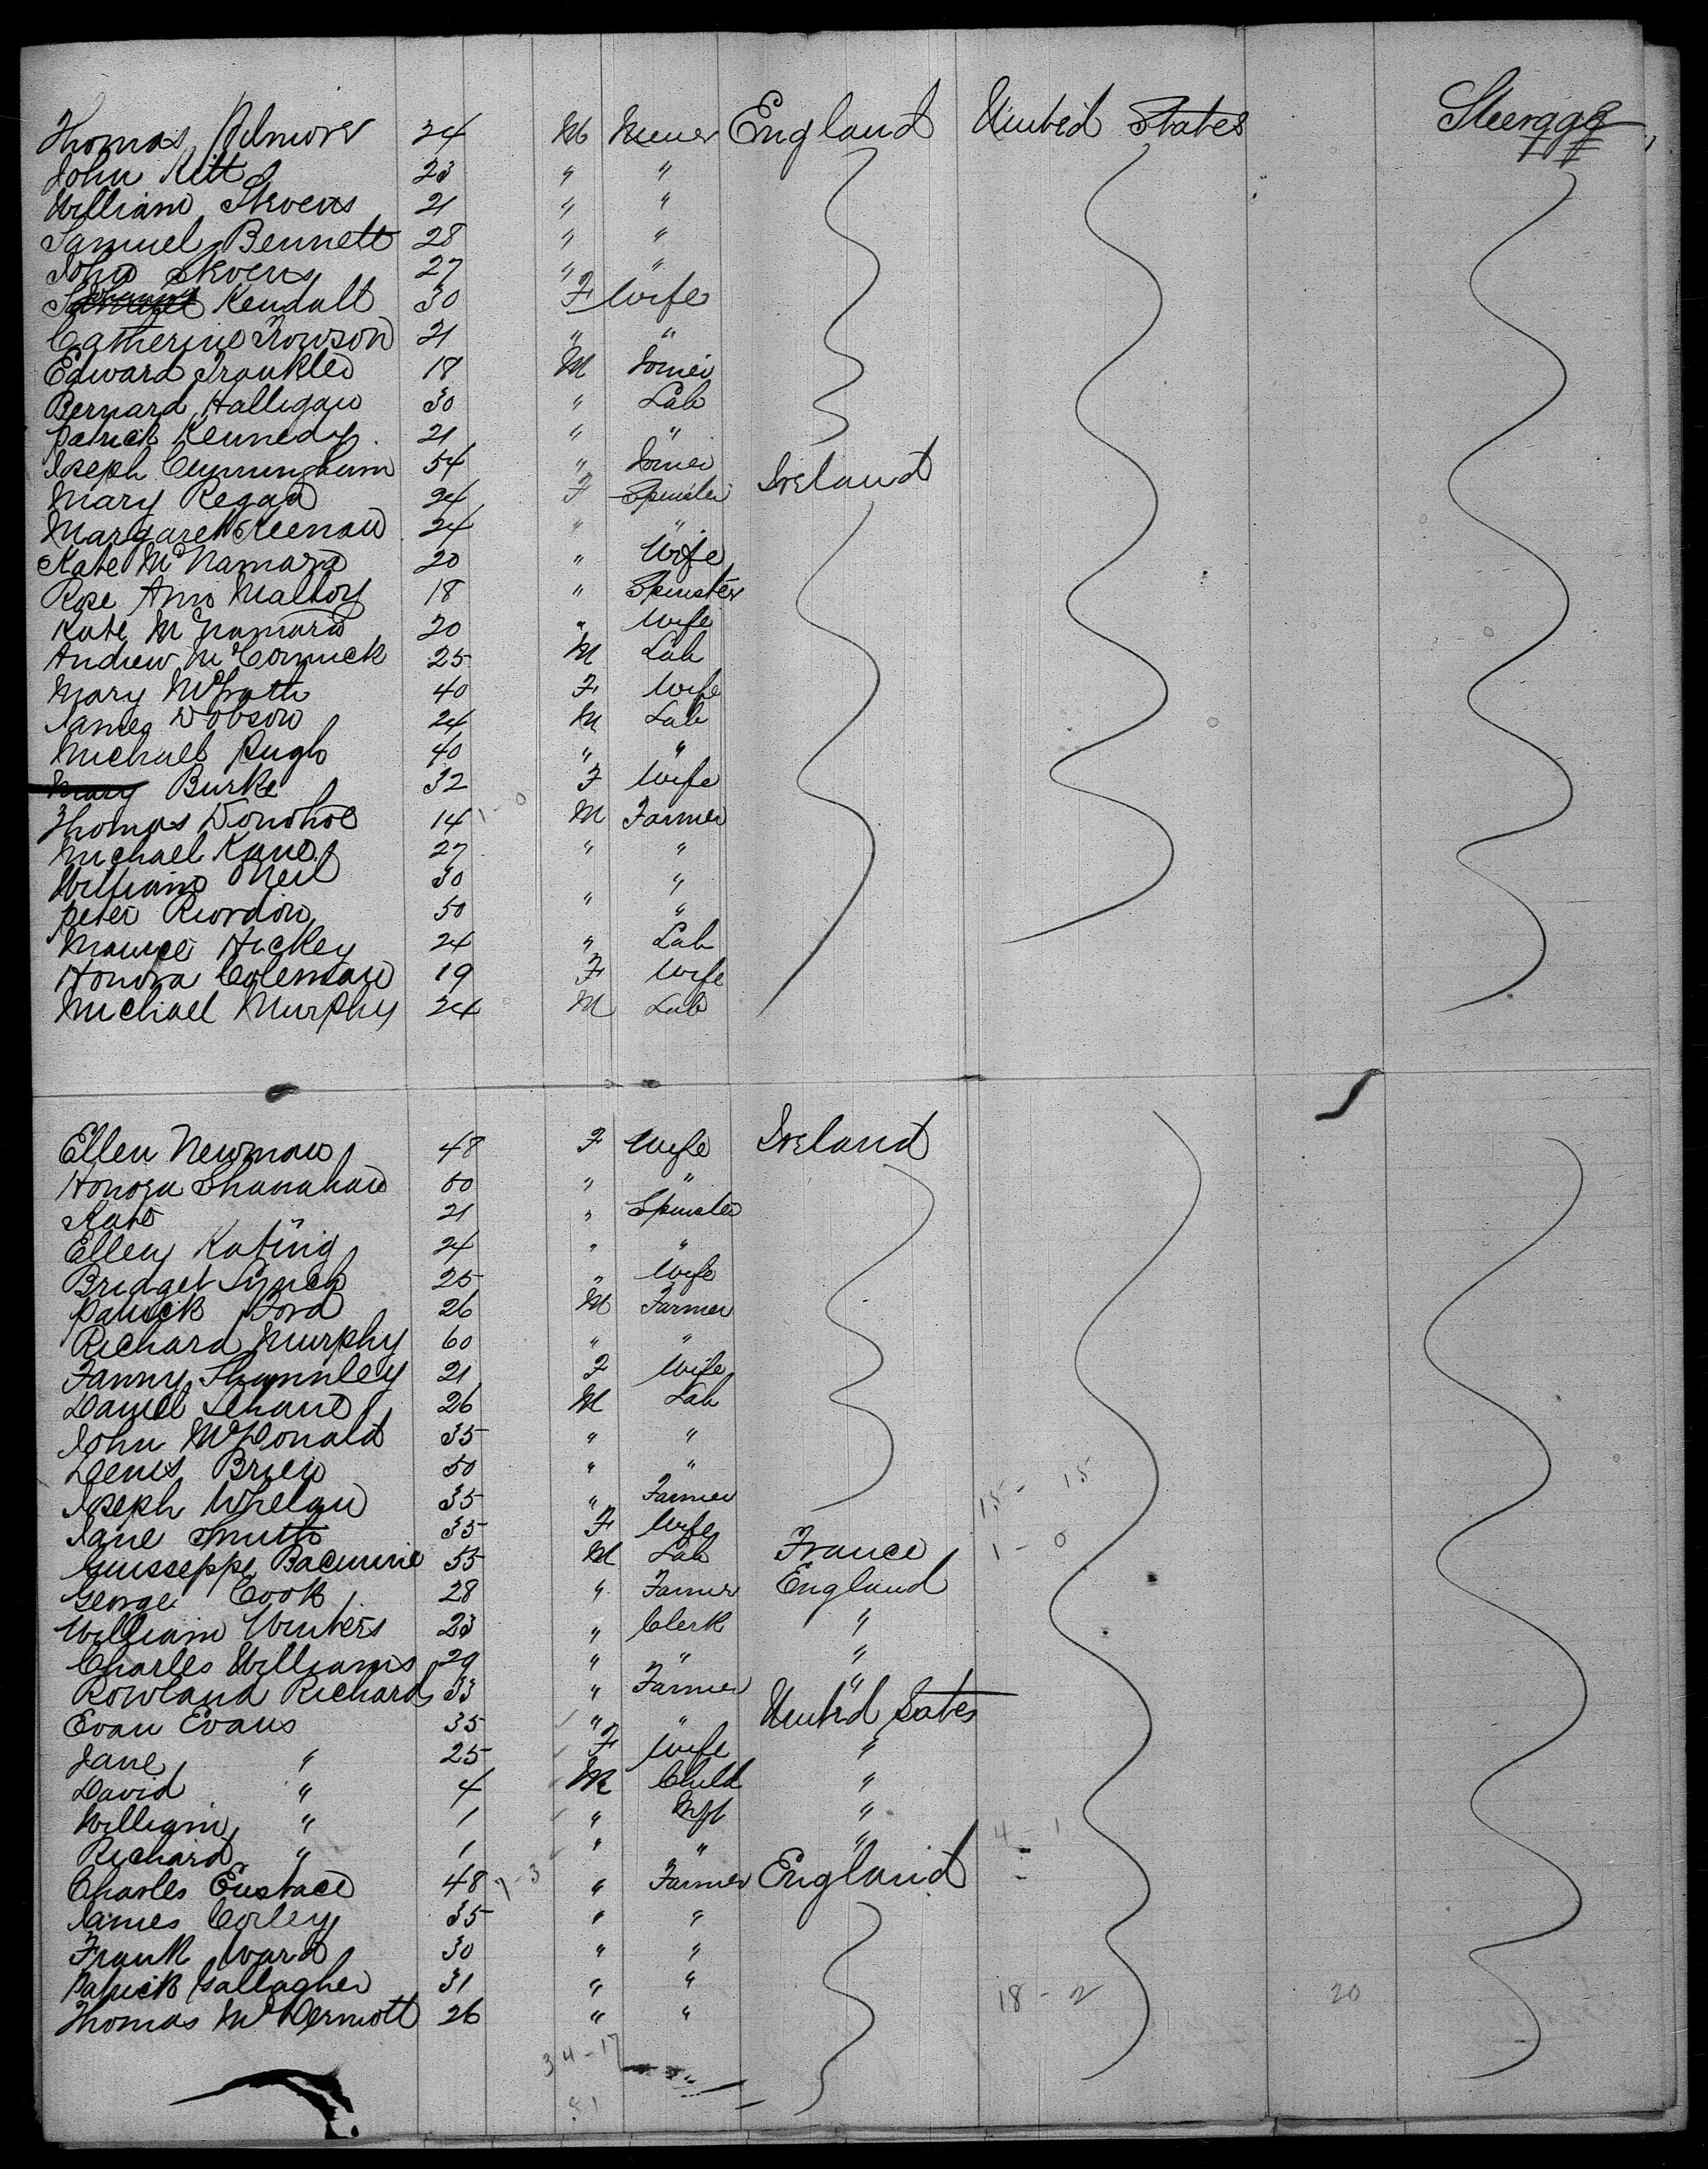 Thomas Pilmore 24 M Miner England United States Steerage
John Kitt 23 " "
William Stevens 21 " "
Samuel Bennett 28 " "
John Stevens 27 " "
Kendall 30 F Wife
Catherine Trowson 21 " "
Edward Franklin 18 M Joiner
Bernard Halligan 30 " Lab
Patrick Kennedy 21 " "
Joseph Cunningham 54 " Joiner Ireland
Mary Regan 24 F Spinster
Margaret Keenan 24 " "
Kate McNamara 20 " Wife
Rose Ann Malloy 18 " Spinster
Kate McNamara 20 " Wife
Andrew McCormick 25 M Lab
Mary McGrath 40 F Wife
James Dobson 24 M Lab
Michael Pugh 40 " "
Mary Burke 32 F Wife
Thomas Donohoe 14 1-0 M Farmer
Michael Kane 27 " "
William Neil 30 "
Peter Riordin 50 " "
Maurice Hickey 24 " Lab
Honora Coleman 19 F Wife
Michael Murphy 24 M Lab
Ellen Newman 48 F Wife Ireland
Honora Shanahan 50 " "
Kate 21 " Spinster
Ellen Kating 24 " "
Bridget Lynch 25 " Wife
Patrick Ford 26 M Farmer
Richard Murphy 60 " "
Fanny 21 F Wife
Daniel Lehane 26 M Lab
John McDonald 35 " "
Denis Brien 50 " " 15 - 15
Joseph Whelan 35 " Farmer
Jane Smith 35 F Wife
Guisseppe 55 M Lab France 1 - 0
George Cook 28 " Farmer England
William Winters 23 " Clerk "
Charles Williams 29 " " "
Rowland Richards 33 " Farmer "
Evan Evans 35 " " United States
Jane " 25 F Wife "
David " 4 M Child "
William " 1 " Inft "
Richard " 1 " " " 4 - 1
Charles Eustace 48 7-3 " Farmer England
James Corley 35 " "
Frank Ward 30 " "
Patrick Gallagher 31 " " 18 - 2 20
Thomas McDermott 26 " "
34-17
51